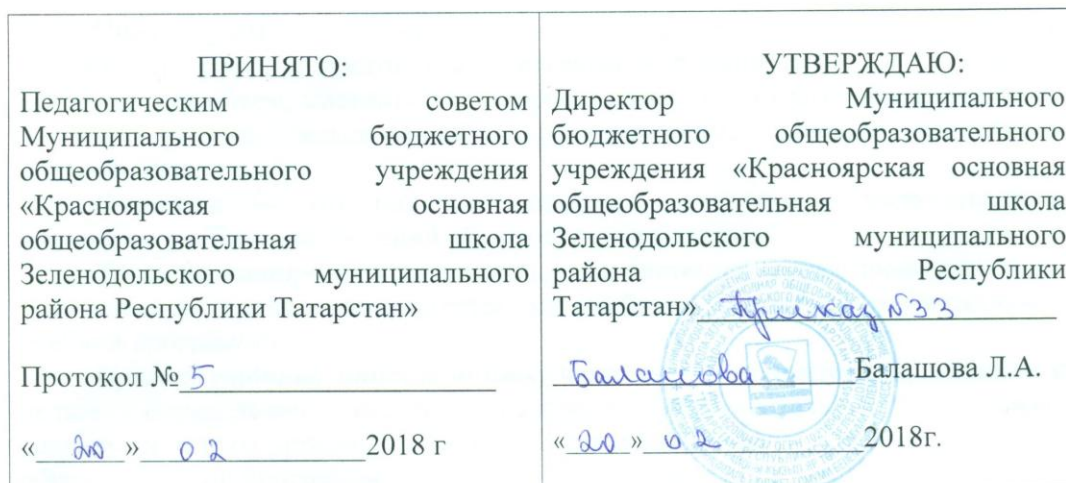 ПРИНЯТО:
Педагогическим советом
Муниципального бюджетного
общеобразовательного учреждения
«Красноярская основная
общеобразовательная школа
Зеленодольского муниципального
района Республики Татарстан»
Протокол № 5
« 20 » 02 2018 г
УТВЕРЖДАЮ:
Директор Муниципального
бюджетного общеобразовательного
учреждения «Красноярская основная
общеобразовательная школа
Зеленодольского муниципального
района Республики
Татарстан» Приказ №33
Балашова Балашова Л.А.
« 20 » 02 2018г.